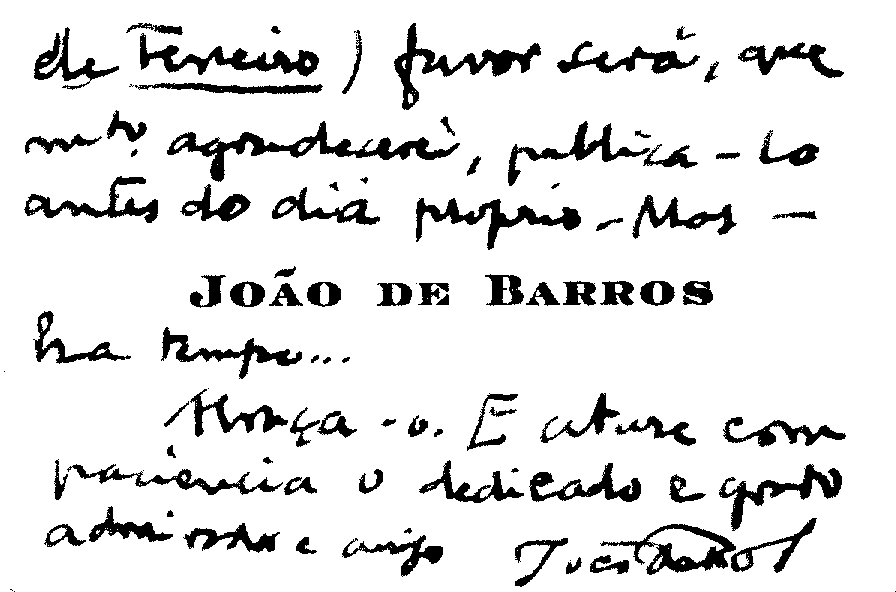 de Terreiro) favor será, que
mtº. agradecerei, publica-lo
antes do dia proprio - Mas -
JOÃO DE BARROS
ha tempo...
Abraça-o. E ature com
paciencia o dedicado e grato
admirador e amigo João de Barros